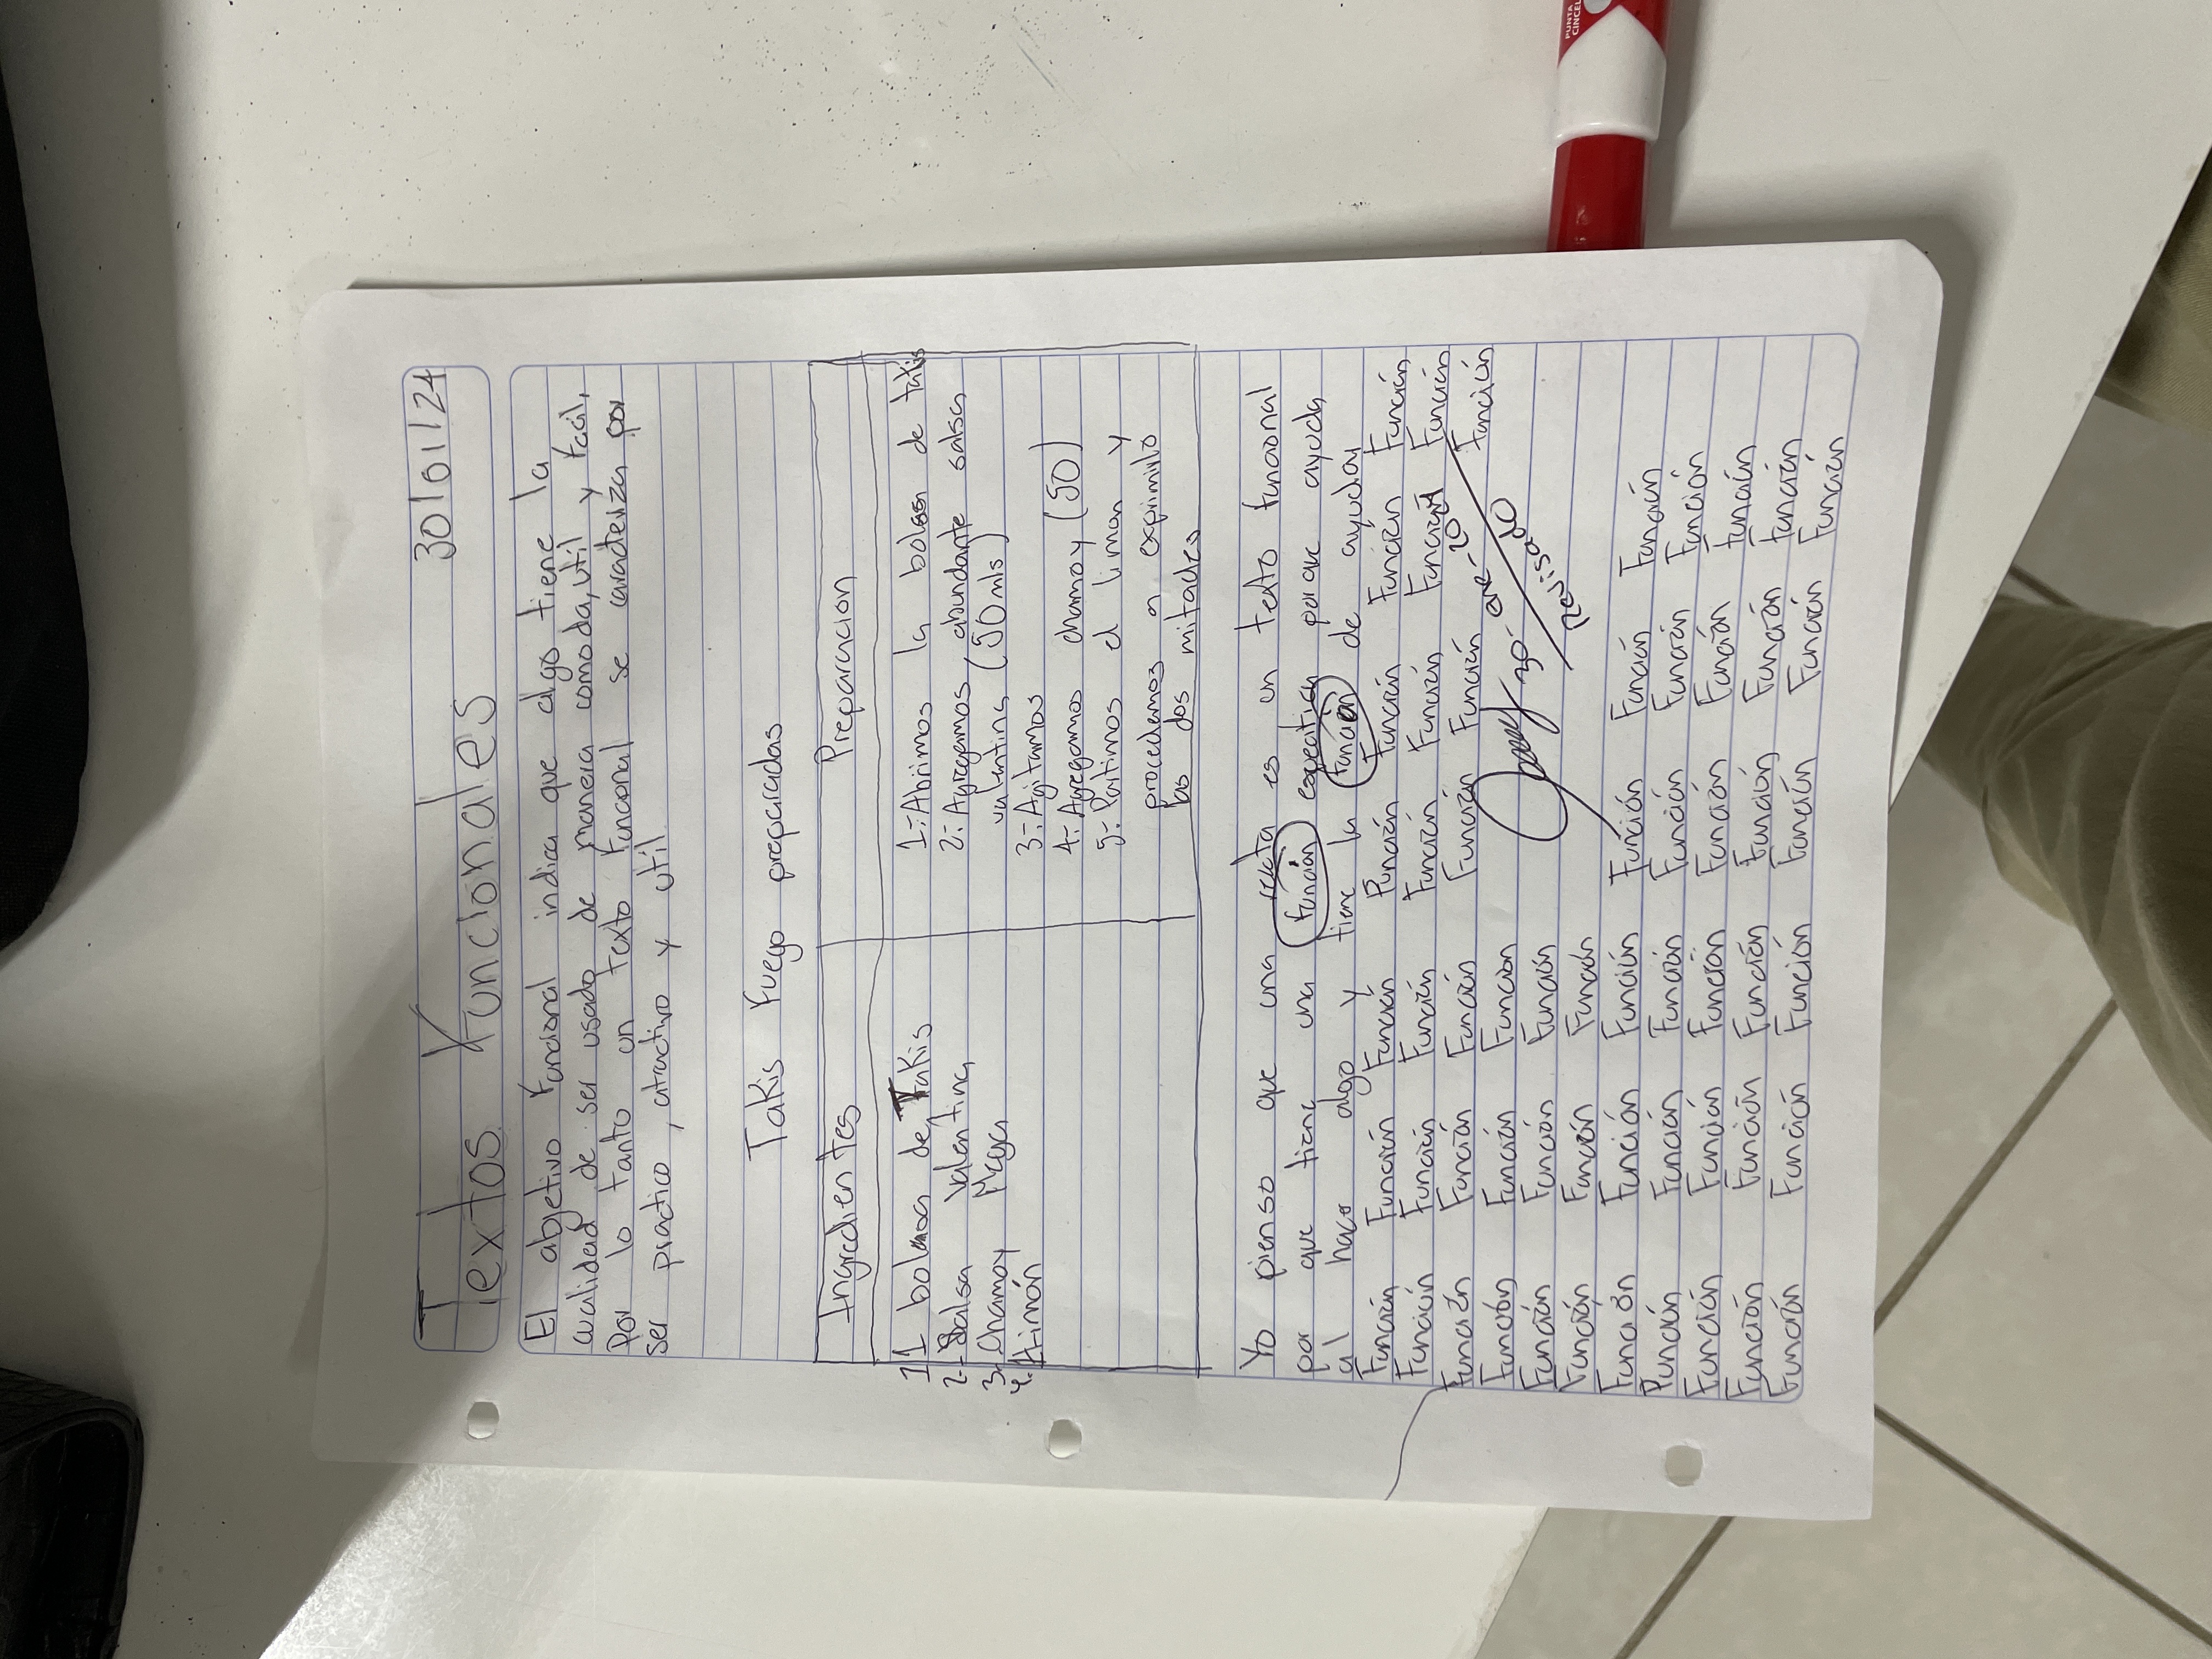 Textos Funcionales 30/01/24
El abjetivo Funcional indica que algo tiene la
cualidad de ser usado de manera comoda, util y facil,
Por lo tanto un texto Funconal se caracteriza por
ser practico, atractivo y util
Takis Fuego preparadas
Ingredientes Preparacion
1 1 bolsa de Takis
2- Salsa Valentina
3- Chamoy Mega
4- Limón
1-: Abrimos la bolsa de takis
2-: Agregamos abundante salsa
valentina (50 mls)
3-: Agitamos
4-: Agregamos chamoy (50)
5-: Partimos el limon y
procedemos a exprimirlo
las dos mitades
Yo pienso que una receta es un texto funcional
por que tiene una función especifica porque ayuda
al hacer algo y tiene la función de ayudar
Función Función Función Función Función Función Función
Función Función Función Función Función Función Función
Función Función Función Función Función Función
Función Función Función
Función Función Función
Función Función Función
Función Función Función Función Función Función
Función Función Función Función Función Función
Función Función Función Función Función Función
Función Función Función Función Función Función
Función Función Función Función Función Función
30-ene-20
Revisado
PUNTA
CINCEL